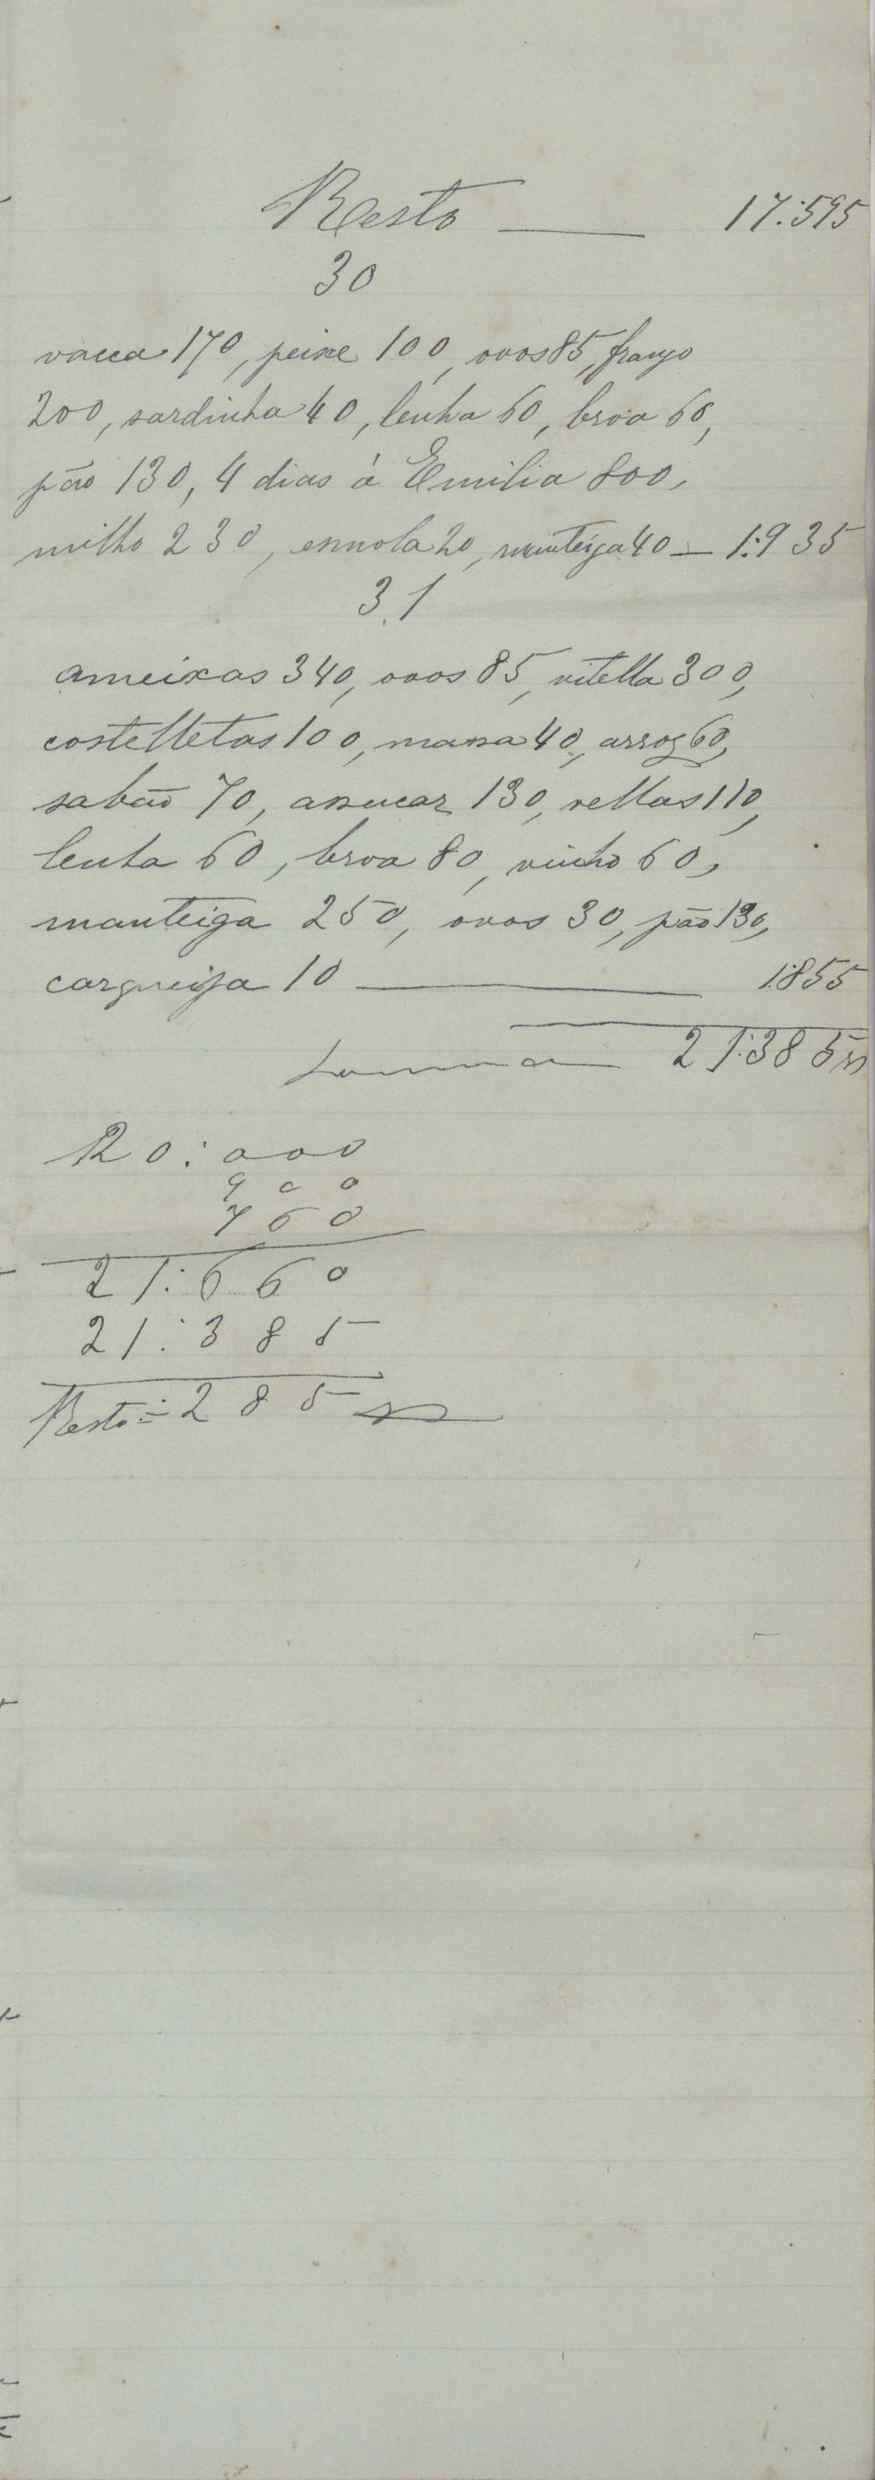 Resto — 17:595
30
vacca 170, peixe 100, ovos 85, frango
200, sardinha 40, lenha 60, broa 60,
pão 130, 4 dias á Emilia 800,
milho 230, esmola 20, manteiga 40 — 1:935
31
ameixas 340, ovos 85, vitella 300,
costelletas 100, massa 40, arroz 60,
sabão 70, assucar 130, vellas 110,
lenha 60, broa 80, vinho 60,
manteiga 250, ovos 30, pão 130,
carqueija 10 — 1:855
Somma — 21:385
20:000
900
760
21:660
21:385
Resto = 285